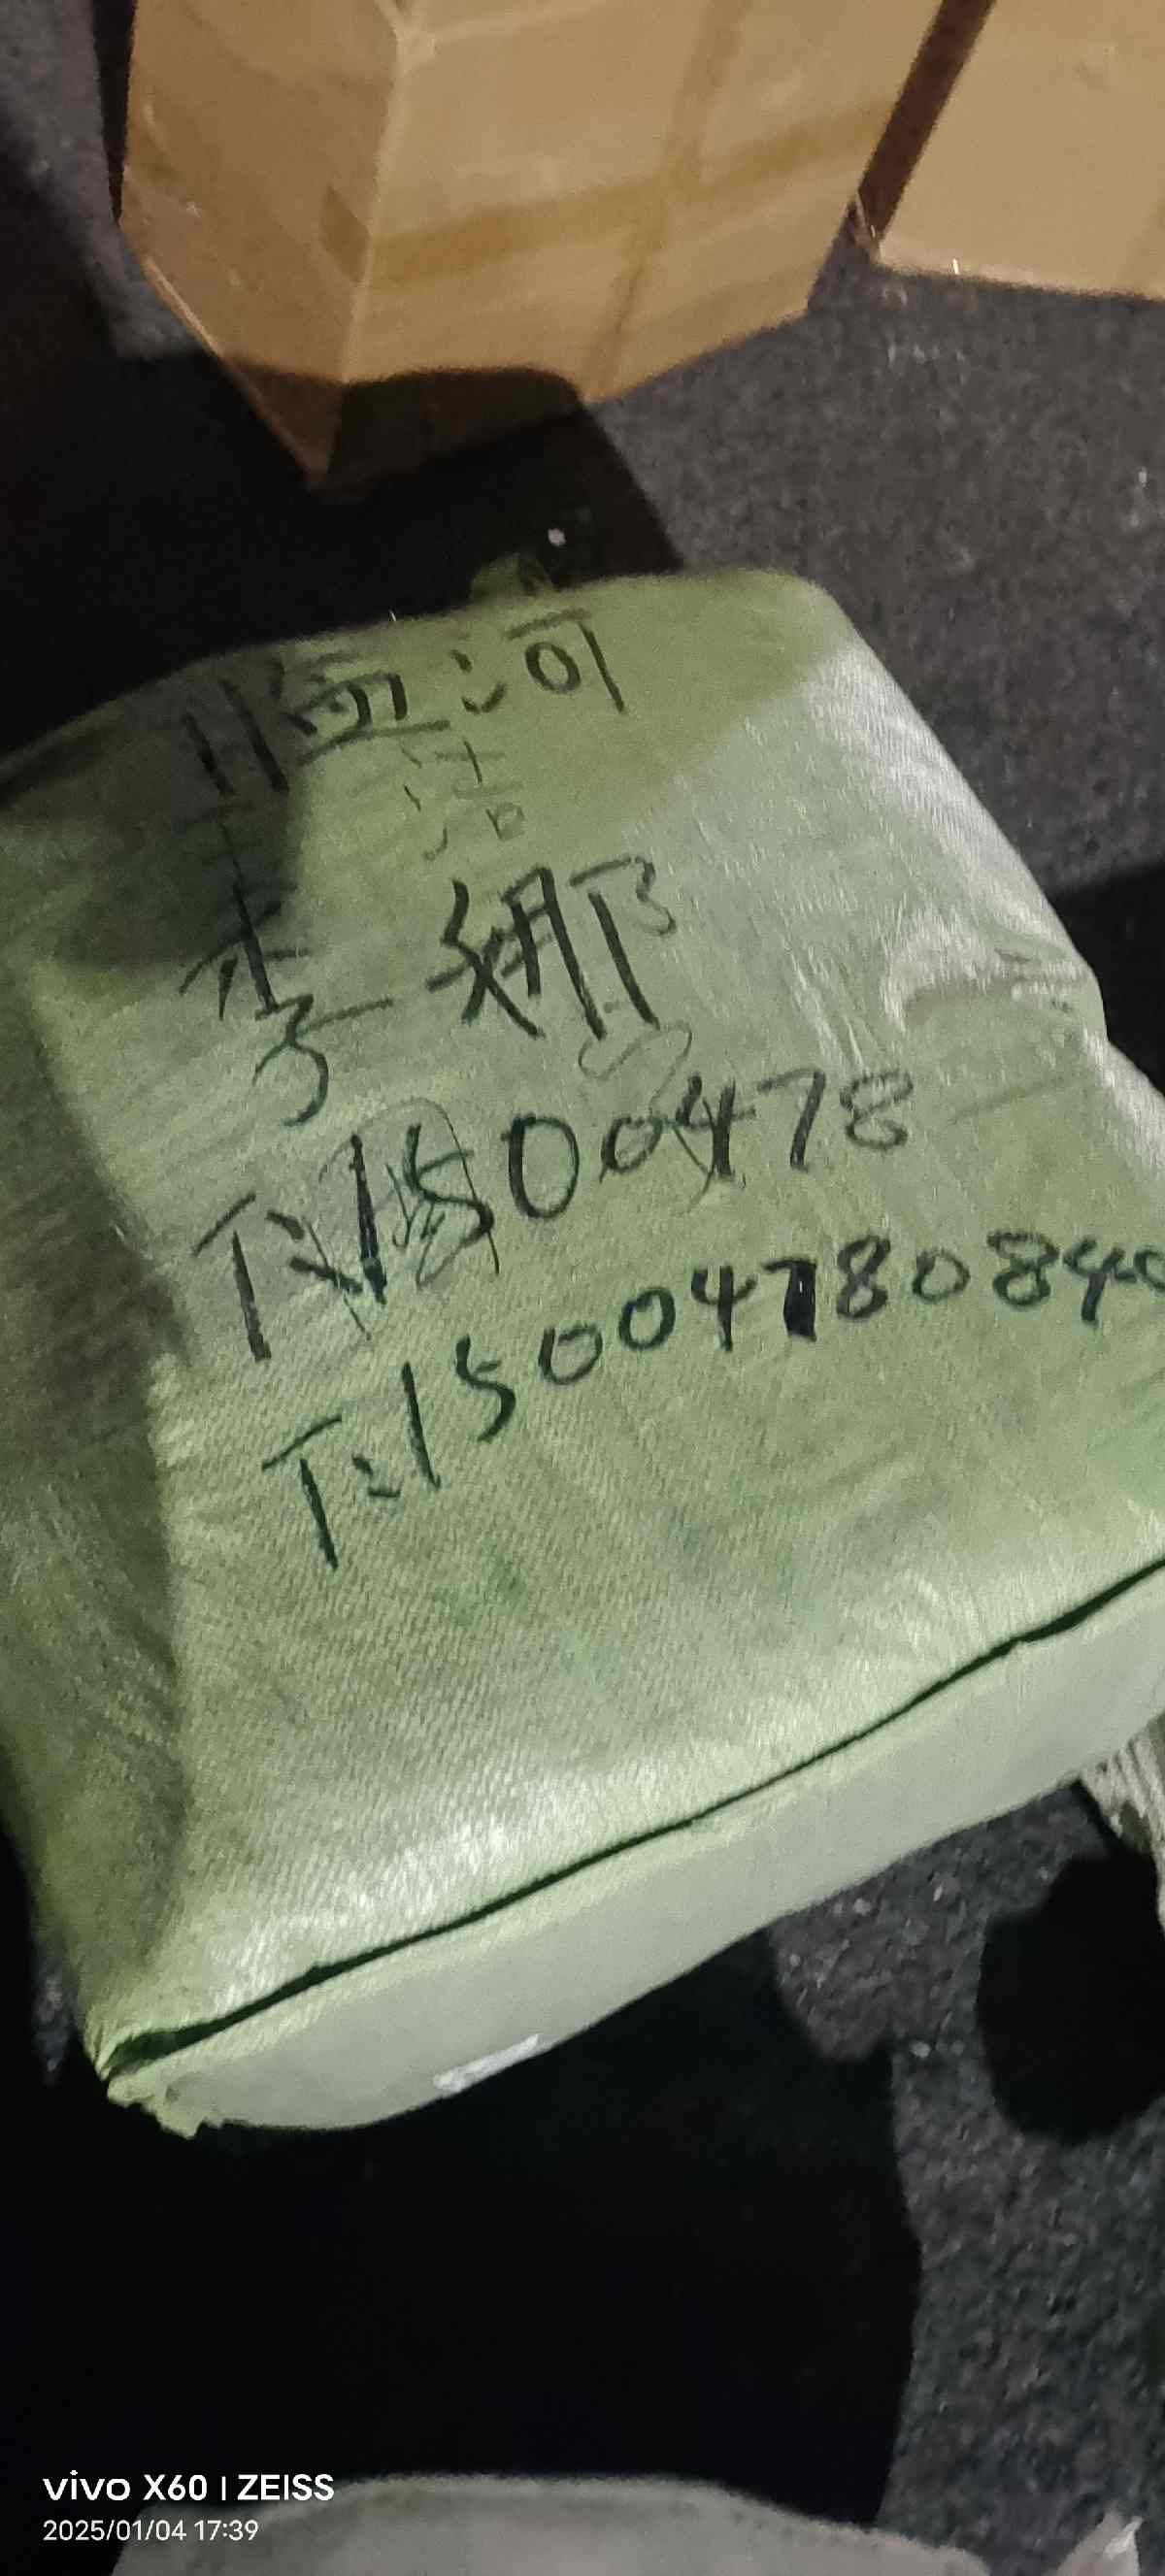 临河
李娜
T:1500478
T:15004780840
vivo X60 | ZEISS
2025/01/04 17:39